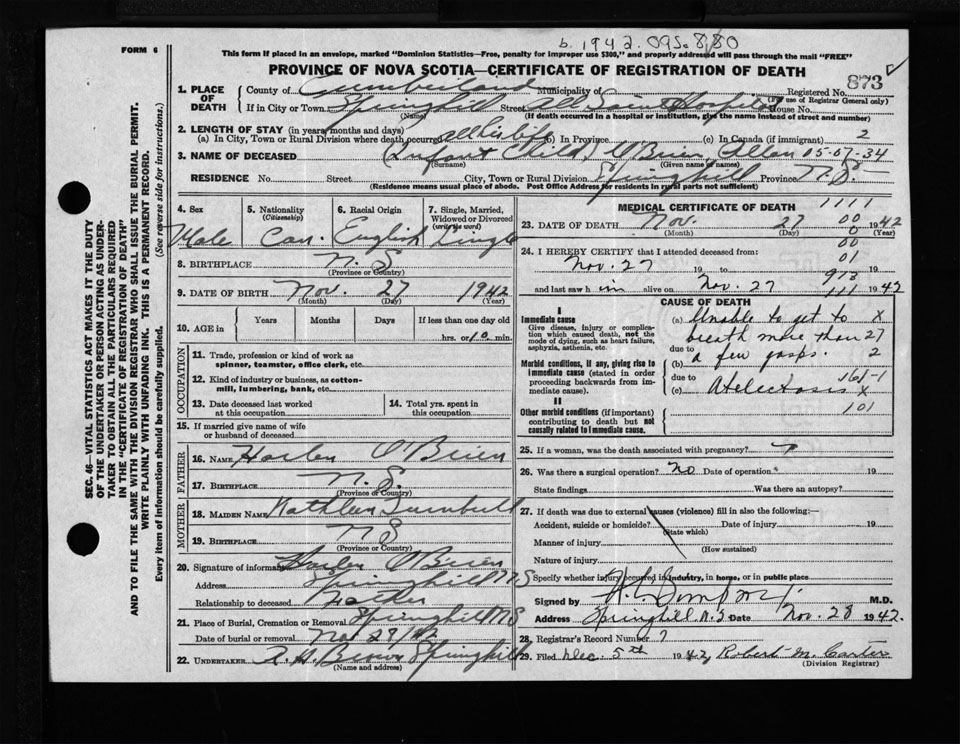 b. 1942. 095. 880
FORM 6
This form if placed in an envelope, marked "Dominion Statistics—Free, penalty for improper use $300," and properly addressed will pass through the mail "FREE"
PROVINCE OF NOVA SCOTIA—CERTIFICATE OF REGISTRATION OF DEATH
SEC. 46—VITAL STATISTICS ACT MAKES IT THE DUTY
OF THE UNDERTAKER OR PERSON ACTING AS UNDER-
TAKER TO OBTAIN ALL THE PARTICULARS REQUIRED
IN THE "CERTIFICATE OF REGISTRATION OF DEATH"
AND TO FILE THE SAME WITH THE DIVISION REGISTRAR WHO SHALL ISSUE THE BURIAL PERMIT.
WRITE PLAINLY WITH UNFADING INK. THIS IS A PERMANENT RECORD.
Every item of information should be carefully supplied. (See reverse side for instructions.)
1. PLACE OF DEATH
County of Cumberland Municipality of Registered No. 873
(For use of Registrar General only)
If in City or Town Springhill Street All Saints Hospital House No.
(Name) (If death occurred in a hospital or institution, give the name instead of street and number)
2. LENGTH OF STAY (in years, months and days)
(a) In City, Town or Rural Division where death occurred all his life (b) In Province (c) In Canada (if immigrant) 2
3. NAME OF DECEASED (Infant Child) O'Brien, Allan 05-07-34
(Surname) (Given name or names)
RESIDENCE No. Street City, Town or Rural Division Springhill Province N.S.
(Residence means usual place of abode. Post Office Address for residents in rural parts not sufficient)
4. Sex Male
5. Nationality (Citizenship) Can.
6. Racial Origin English
7. Single, Married, Widowed or Divorced (write the word) Single
8. BIRTHPLACE N.S.
(Province or Country)
9. DATE OF BIRTH Nov. 27 1942
(Month) (Day) (Year)
10. AGE in Years Months Days If less than one day old
hrs. or 10 min.
OCCUPATION
11. Trade, profession or kind of work as
spinner, teamster, office clerk, etc.
12. Kind of industry or business, as cotton-
mill, lumbering, bank, etc.
13. Date deceased last worked
at this occupation
14. Total yrs. spent in
this occupation
15. If married give name of wife
or husband of deceased
FATHER
16. Name Harlen O'Brien
17. Birthplace N.S.
(Province or Country)
MOTHER
18. Maiden Name Kathleen Turnbull
19. Birthplace N S
(Province or Country)
20. Signature of informant Harlen O'Brien
Address Springhill NS
Relationship to deceased Father
21. Place of Burial, Cremation or Removal Springhill NS
Date of burial or removal Nov 29/42
22. UNDERTAKER A. H. Brown Springhill
(Name and address)
MEDICAL CERTIFICATE OF DEATH 1111
23. DATE OF DEATH Nov. 27 00 1942
(Month) (Day) 0 (Year)
00
24. I HEREBY CERTIFY that I attended deceased from: 01
Nov. 27 19 to 913 19
and last saw him alive on Nov. 27 111 1942
CAUSE OF DEATH
I
Immediate cause
Give disease, injury or complica-
tion which caused death, not the
mode of dying, such as heart failure,
asphyxia, asthenia, etc.
(a) Unable to get to x
breath more than 27
due to
(b) a few gasps. 2
Morbid conditions, if any, giving rise to
immediate cause (stated in order
proceeding backwards from im-
mediate cause).
due to 161-1
(c) Atelectasis x
101
II
Other morbid conditions (if important)
contributing to death but not
causally related to immediate cause.
25. If a woman, was the death associated with pregnancy?
26. Was there a surgical operation? No Date of operation 19
State findings Was there an autopsy?
27. If death was due to external causes (violence) fill in also the following:—
Accident, suicide or homicide? Date of injury 19
(State which)
Manner of injury
(How sustained)
Nature of injury
Specify whether injury occurred in industry, in home, or in public place
Signed by M.D.
Address Springhill N.S Date Nov. 28 1942.
28. Registrar's Record Number 7
29. Filed Dec. 5th 1942, Robert M. Carter
(Division Registrar)